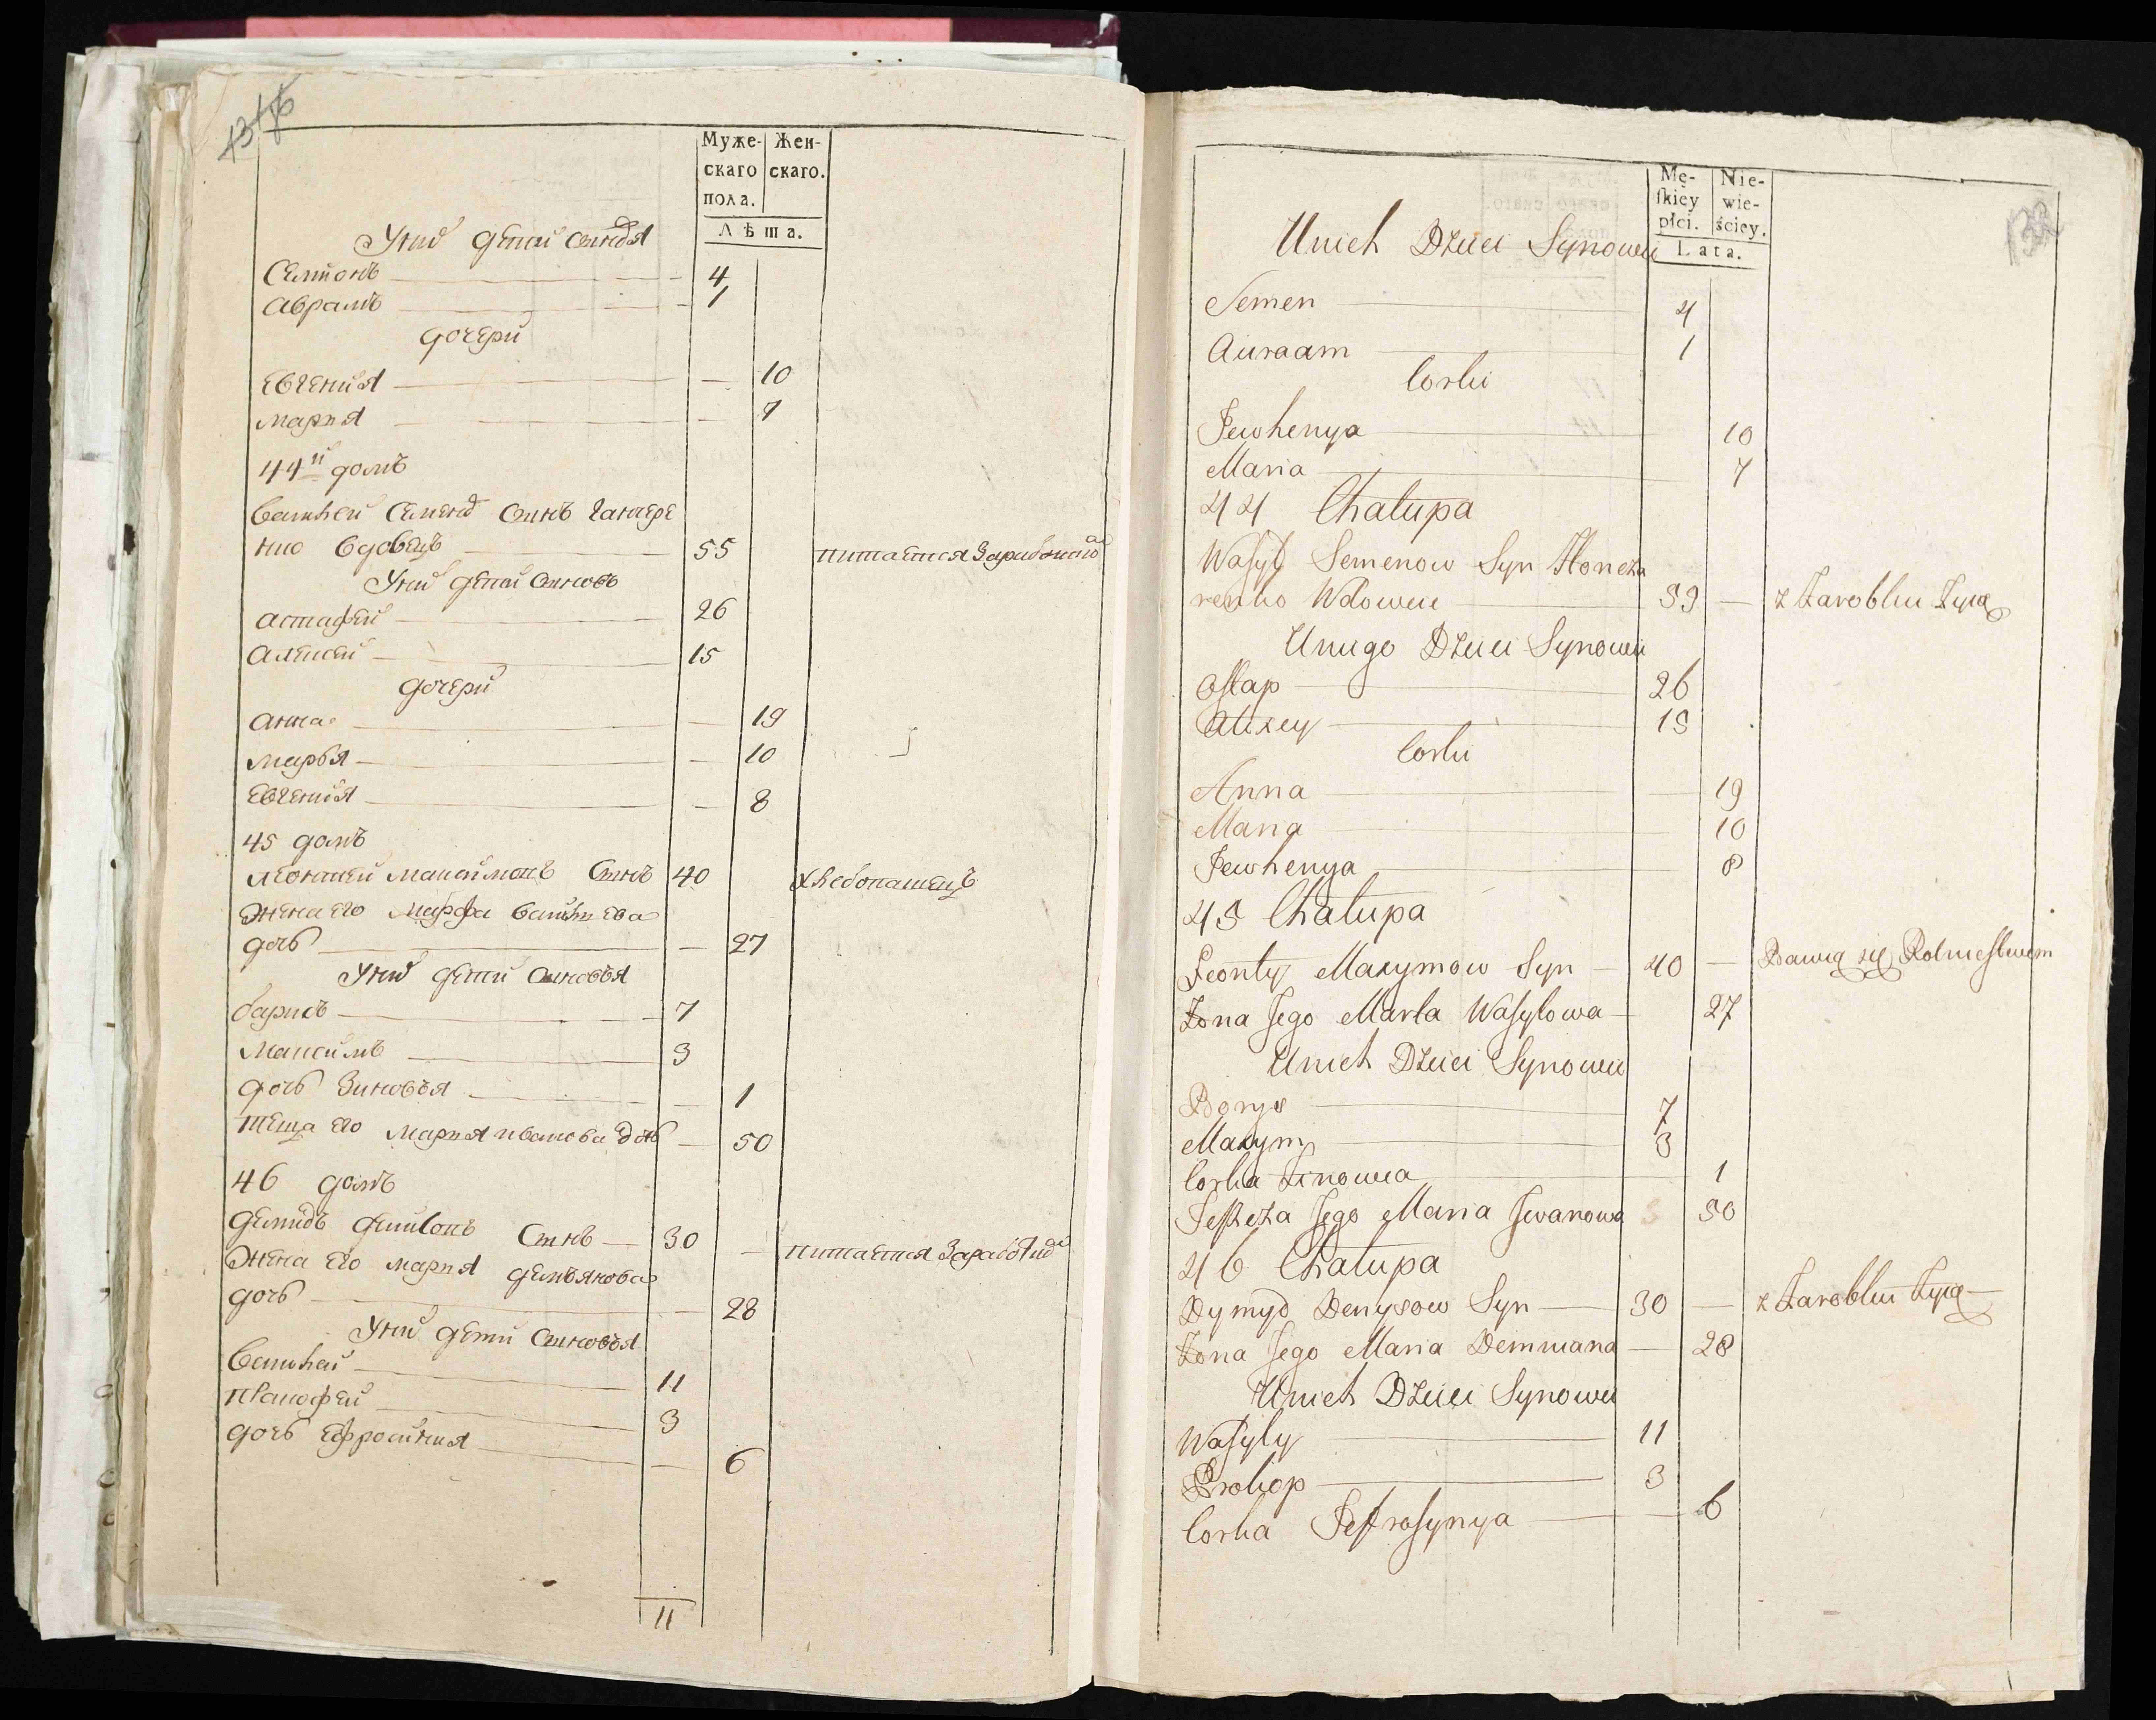 Муже-
скаго
пола.
Жен-
скаго.
Лѣта.
Унихъ дѣтей синовя
Семионъ 4
Аврамъ 1
дочери
Евгения — 10
мария — 7
44й домъ
Василей Семеновъ Синъ Ганчере
нко вдовецъ 55 питается Заработкою
Унихъ дѣтей синовъ
астафей 26
алексей 15
дочери
анна — 19
марья — 10
Евгения — 8
45 домъ
леонтей максимовъ Синъ 40 хлебопашецъ
Жена его марфа василева
дочь — 27
Унихъ дети синовья
борисъ 7
Максимъ 3
дочь Зиновья 1
теща его мария иванова дочь — 50
46 домъ
демидъ Синъ 30 — питается
Жена его мария демьянова
дочь — 28
Унихъ дети синовья
василей 11
прокофей 3
дочь ефросиния — 6
11
Mę-
skiey
płci.
Nie-
wie-
ściey.
Lata.
132
Unich Dzieci Synowie
Semen 4
Auraam 1
Corki
Jewhenya 10
Maria 7
44 Chałupa
Wasyl Semenow Syn Honcza
renko Wdowiec 55 — z Zarobku Zyią
Uniego Dzieci Synowie
Ostap 26
Alixey 15
Corki
Anna 19
Maria 10
Jewhenya 8
45 Chałupa
Leonty Maxymow Syn — 40 — Bawią się Rolnictwem
Zona Jego Marta Wasylowa — 27
Unich Dzieci Synowie
Borys 7
Maxym 3
Corka Zinowia 1
Teszcza Jego Maria Jwanowa 50
46 Chałupa
Dymyd Denysow Syn — 30 — z Zarobku Zyią
Zona Jego Maria Demiana — 28
Unich Dzieci Synowie
Wasyly 11
Prokop 3
Corka Jefrosynya — 6